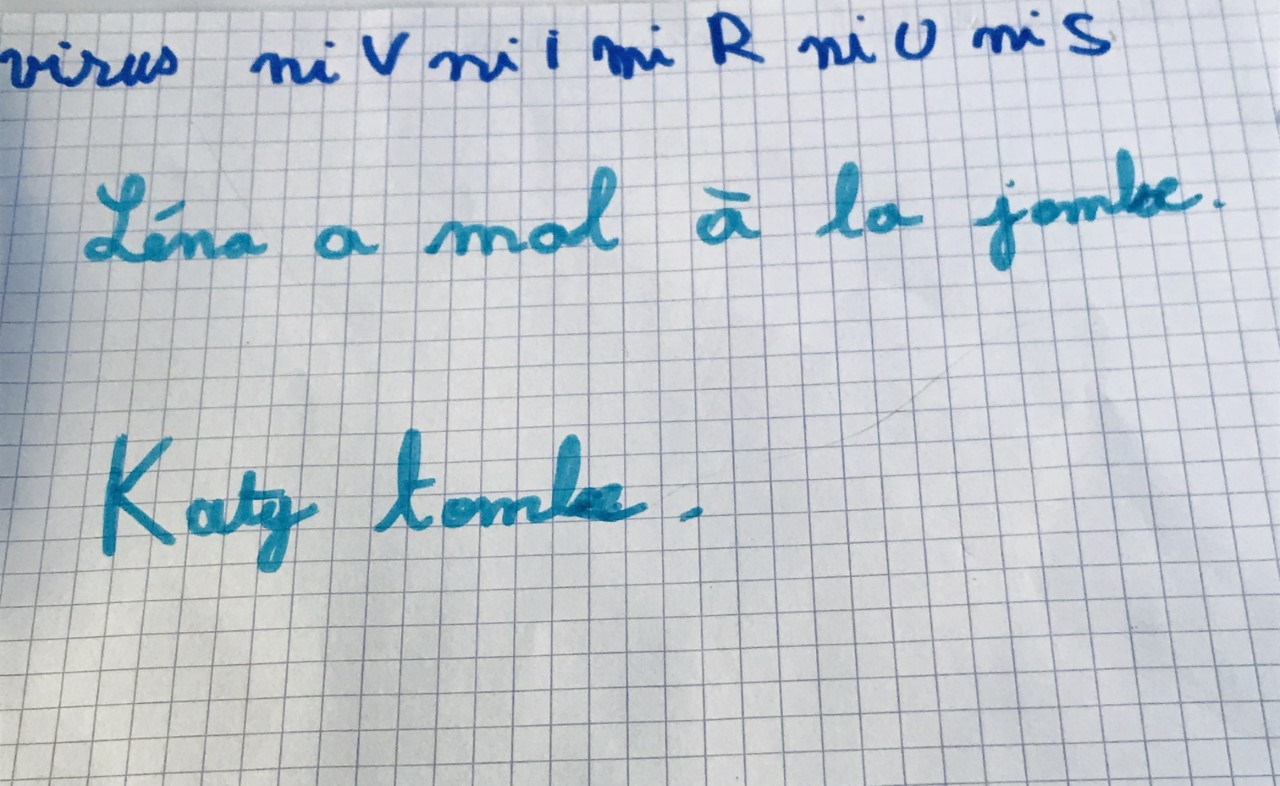 virus ni V ni i ni R ni U ni S
Léna a mal à la jambe.
Katy tombe.